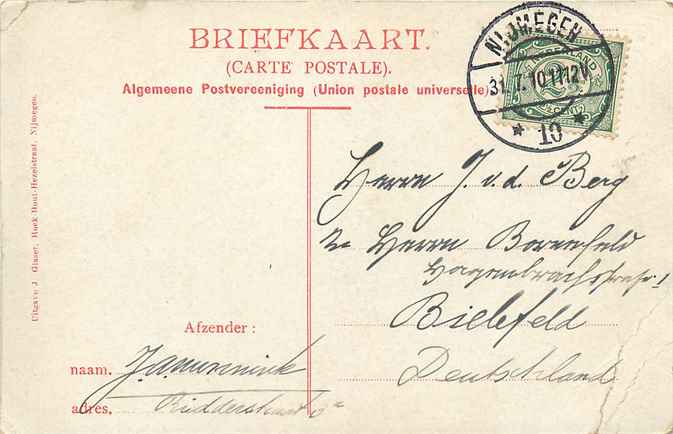 BRIEFKAART.
(CARTE POSTALE).
Algemeene Postvereeniging (Union postale universelle)
NIJMEGEN
31.7.10 11-12V
10
NEDERLAND
2½
Herrn J. v. d. Berg
Herrn Bornefeld
Bielefeld
Deutschland
Afzender:
naam.
adres, Ridderstraat
Uitgave J. Glaser, Hoek Hout-Hezelstraat, Nijmegen.